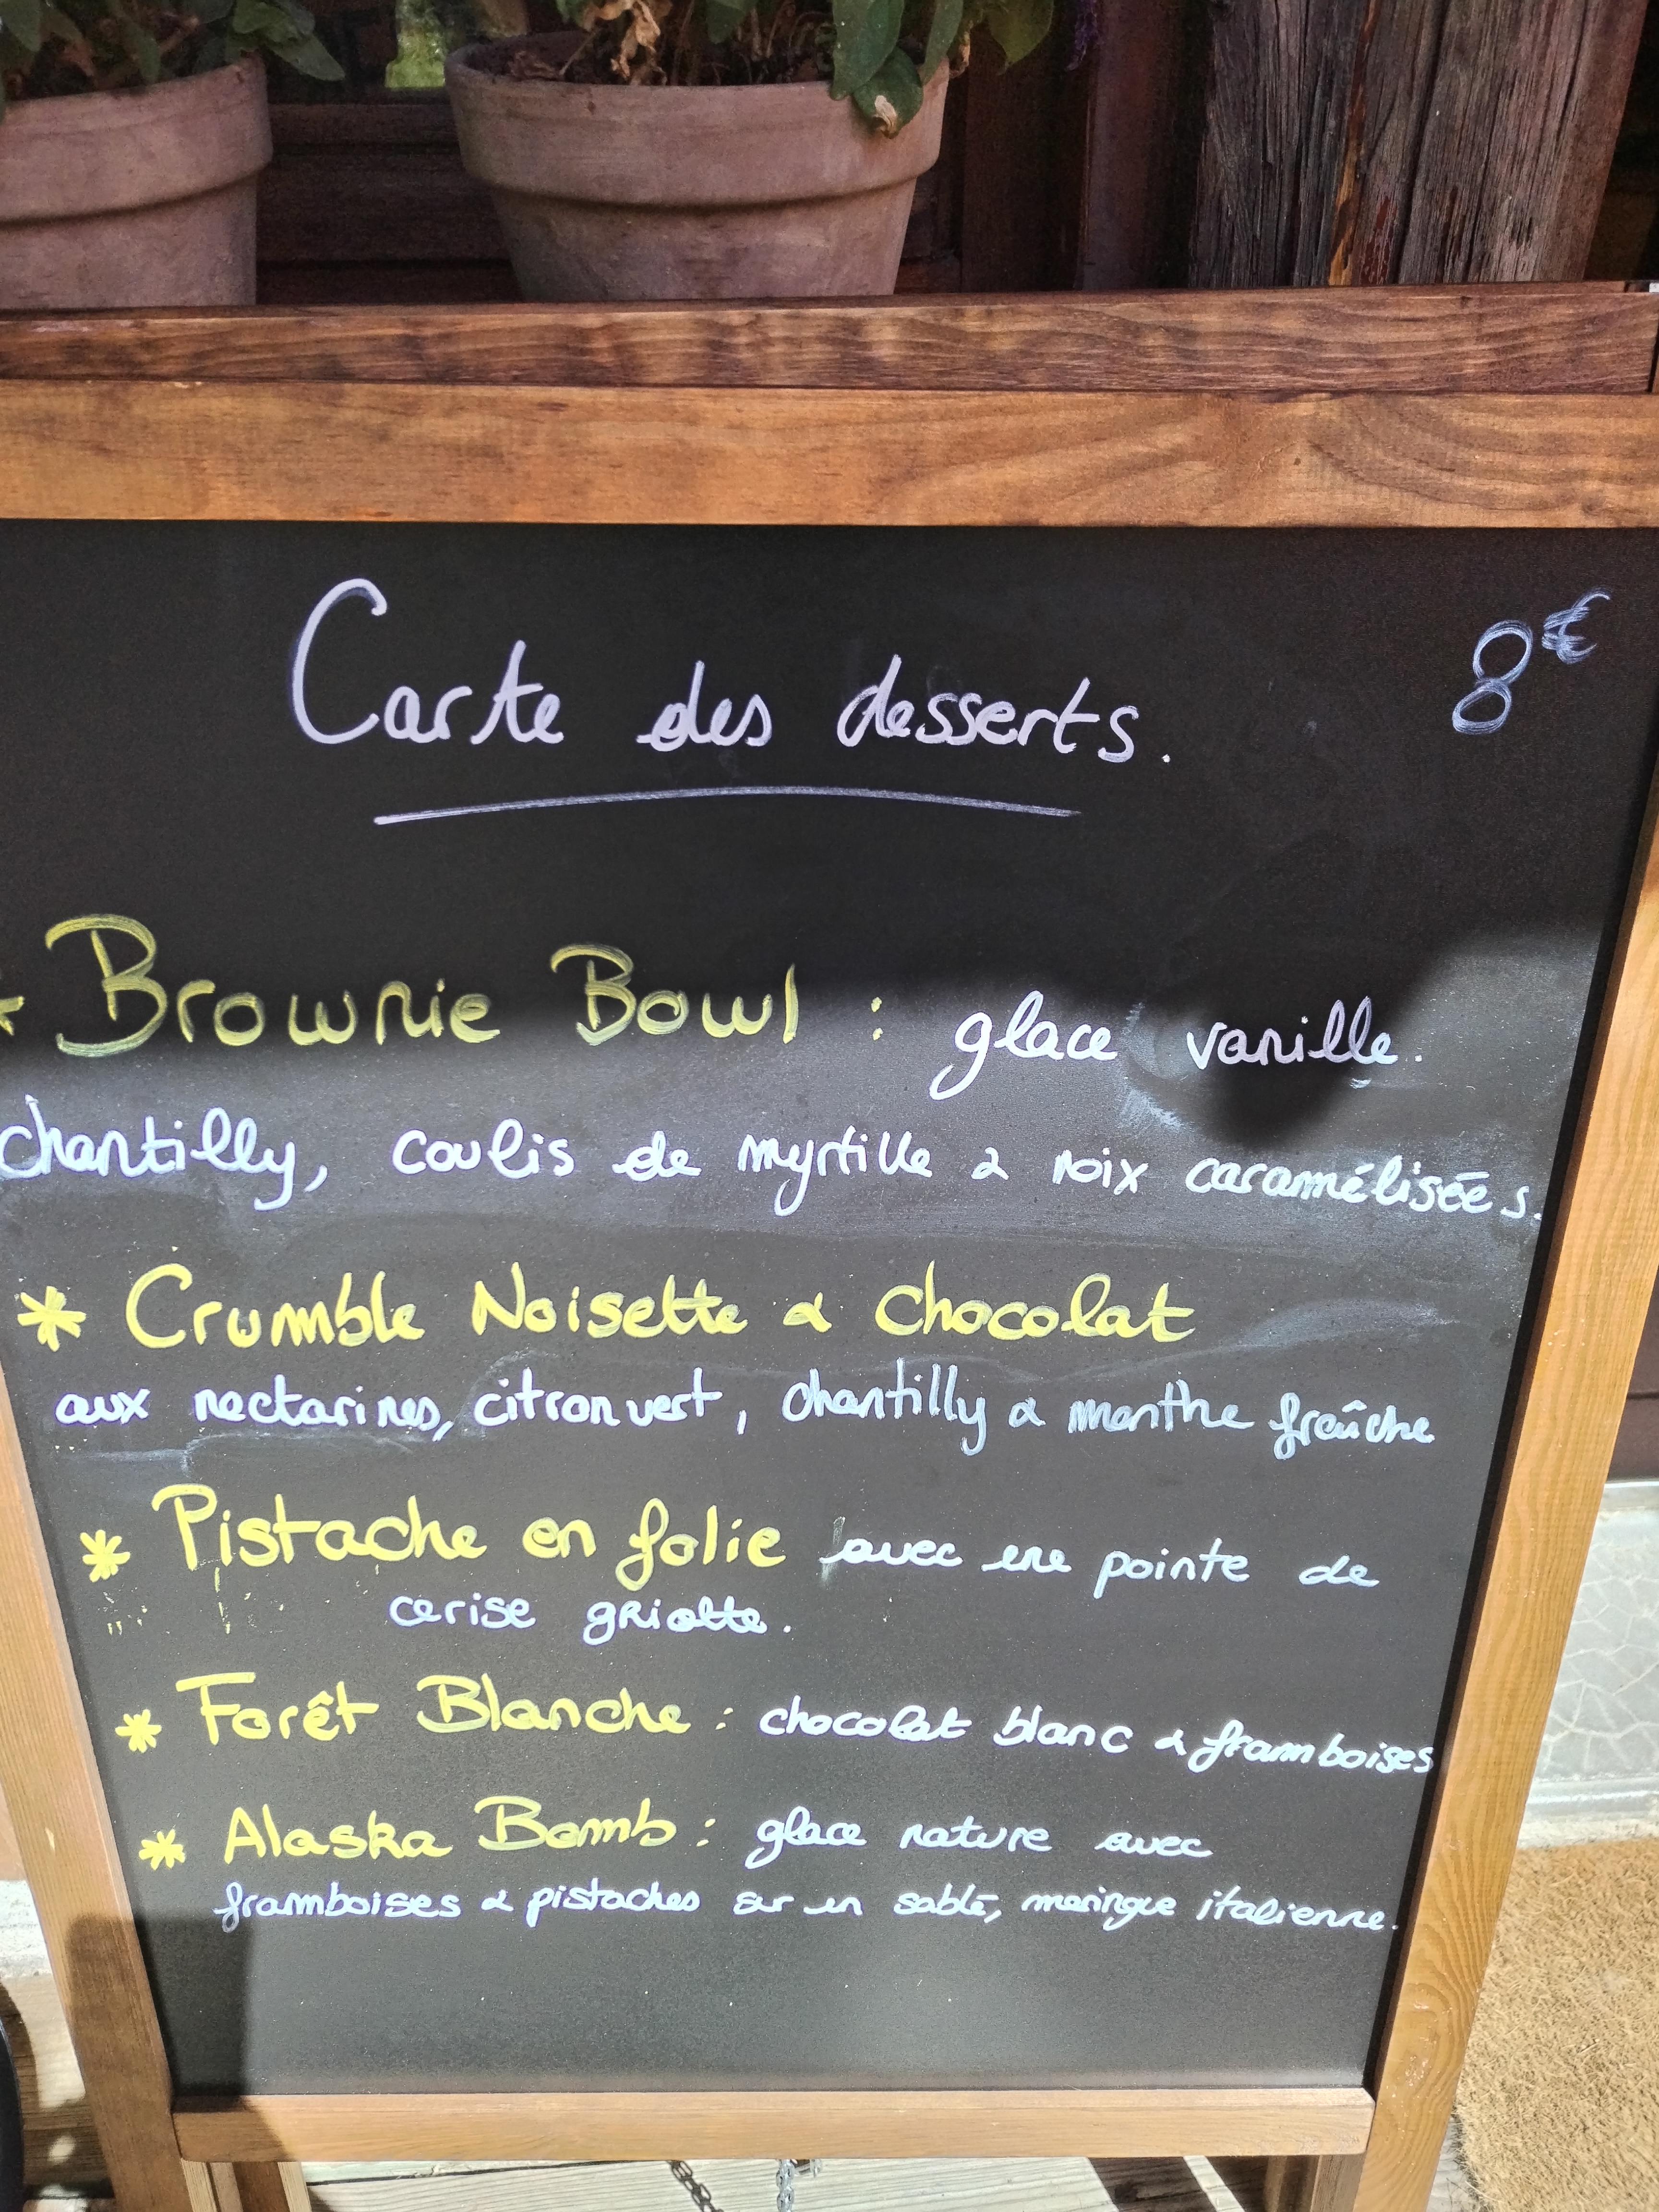 Carte des desserts.
8€
* Brownie Bowl : glace vanille.
chantilly, coulis de myrtille & noix caramélisées.
* Crumble Noisette & chocolat
aux nectarines, citron vert, chantilly & menthe fraîche
* Pistache en folie avec une pointe de
cerise griotte.
* Forêt Blanche : chocolat blanc & framboises
* Alaska Bomb : glace nature avec
framboises & pistaches sur un sablé, meringue italienne.